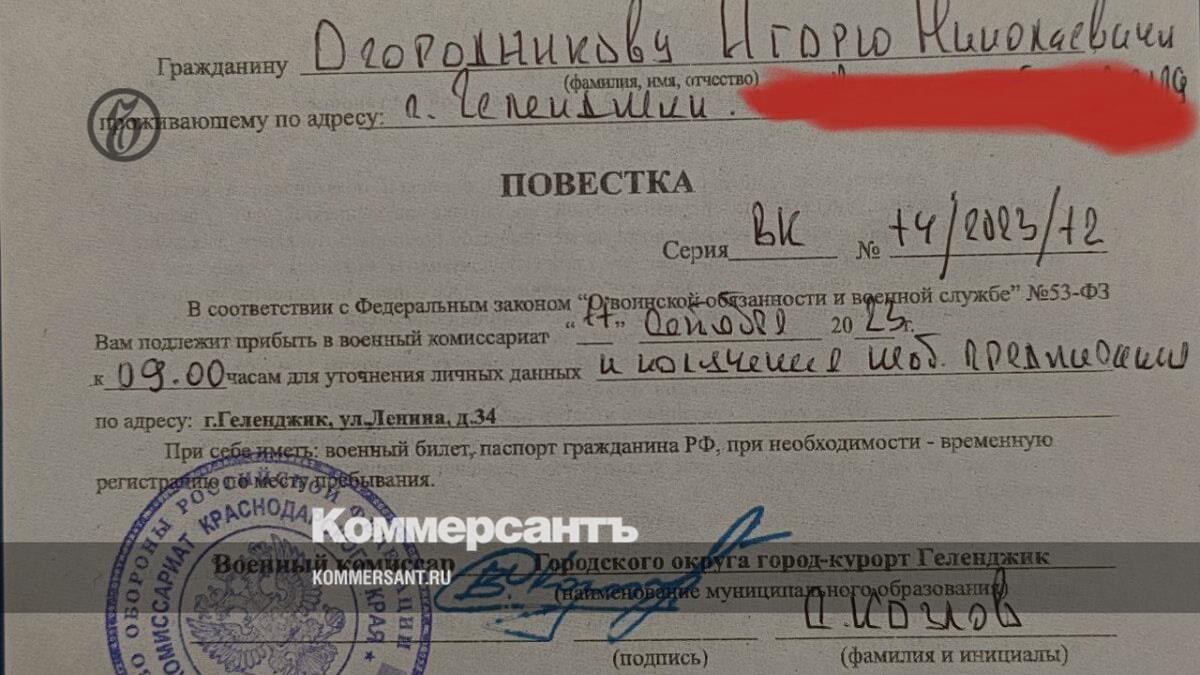 Гражданину Огородникову Игорю Николаевичу
(фамилия, имя, отчество)
проживающему по адресу: г. Геленджик
ПОВЕСТКА
Серия ВК № 14/2023/12
В соответствии с Федеральным законом "О воинской обязанности и военной службе" №53-ФЗ
Вам подлежит прибыть в военный комиссариат "11" октября 20 23 г.
к 09.00 часам для уточнения личных данных и получения моб. предписания
по адресу: г.Геленджик, ул.Ленина, д.34
При себе иметь: военный билет, паспорт гражданина РФ, при необходимости - временную
регистрацию по месту пребывания.
ОБОРОНЫ РОССИЙСКОЙ ФЕДЕРАЦИИ
КОМИССАРИАТ КРАСНОДАРСКОГО КРАЯ
Коммерсантъ
KOMMERSANT.RU
Военный комиссар Городского округа город-курорт Геленджик
(наименование муниципального образования)
Козлов
(подпись) (фамилия и инициалы)